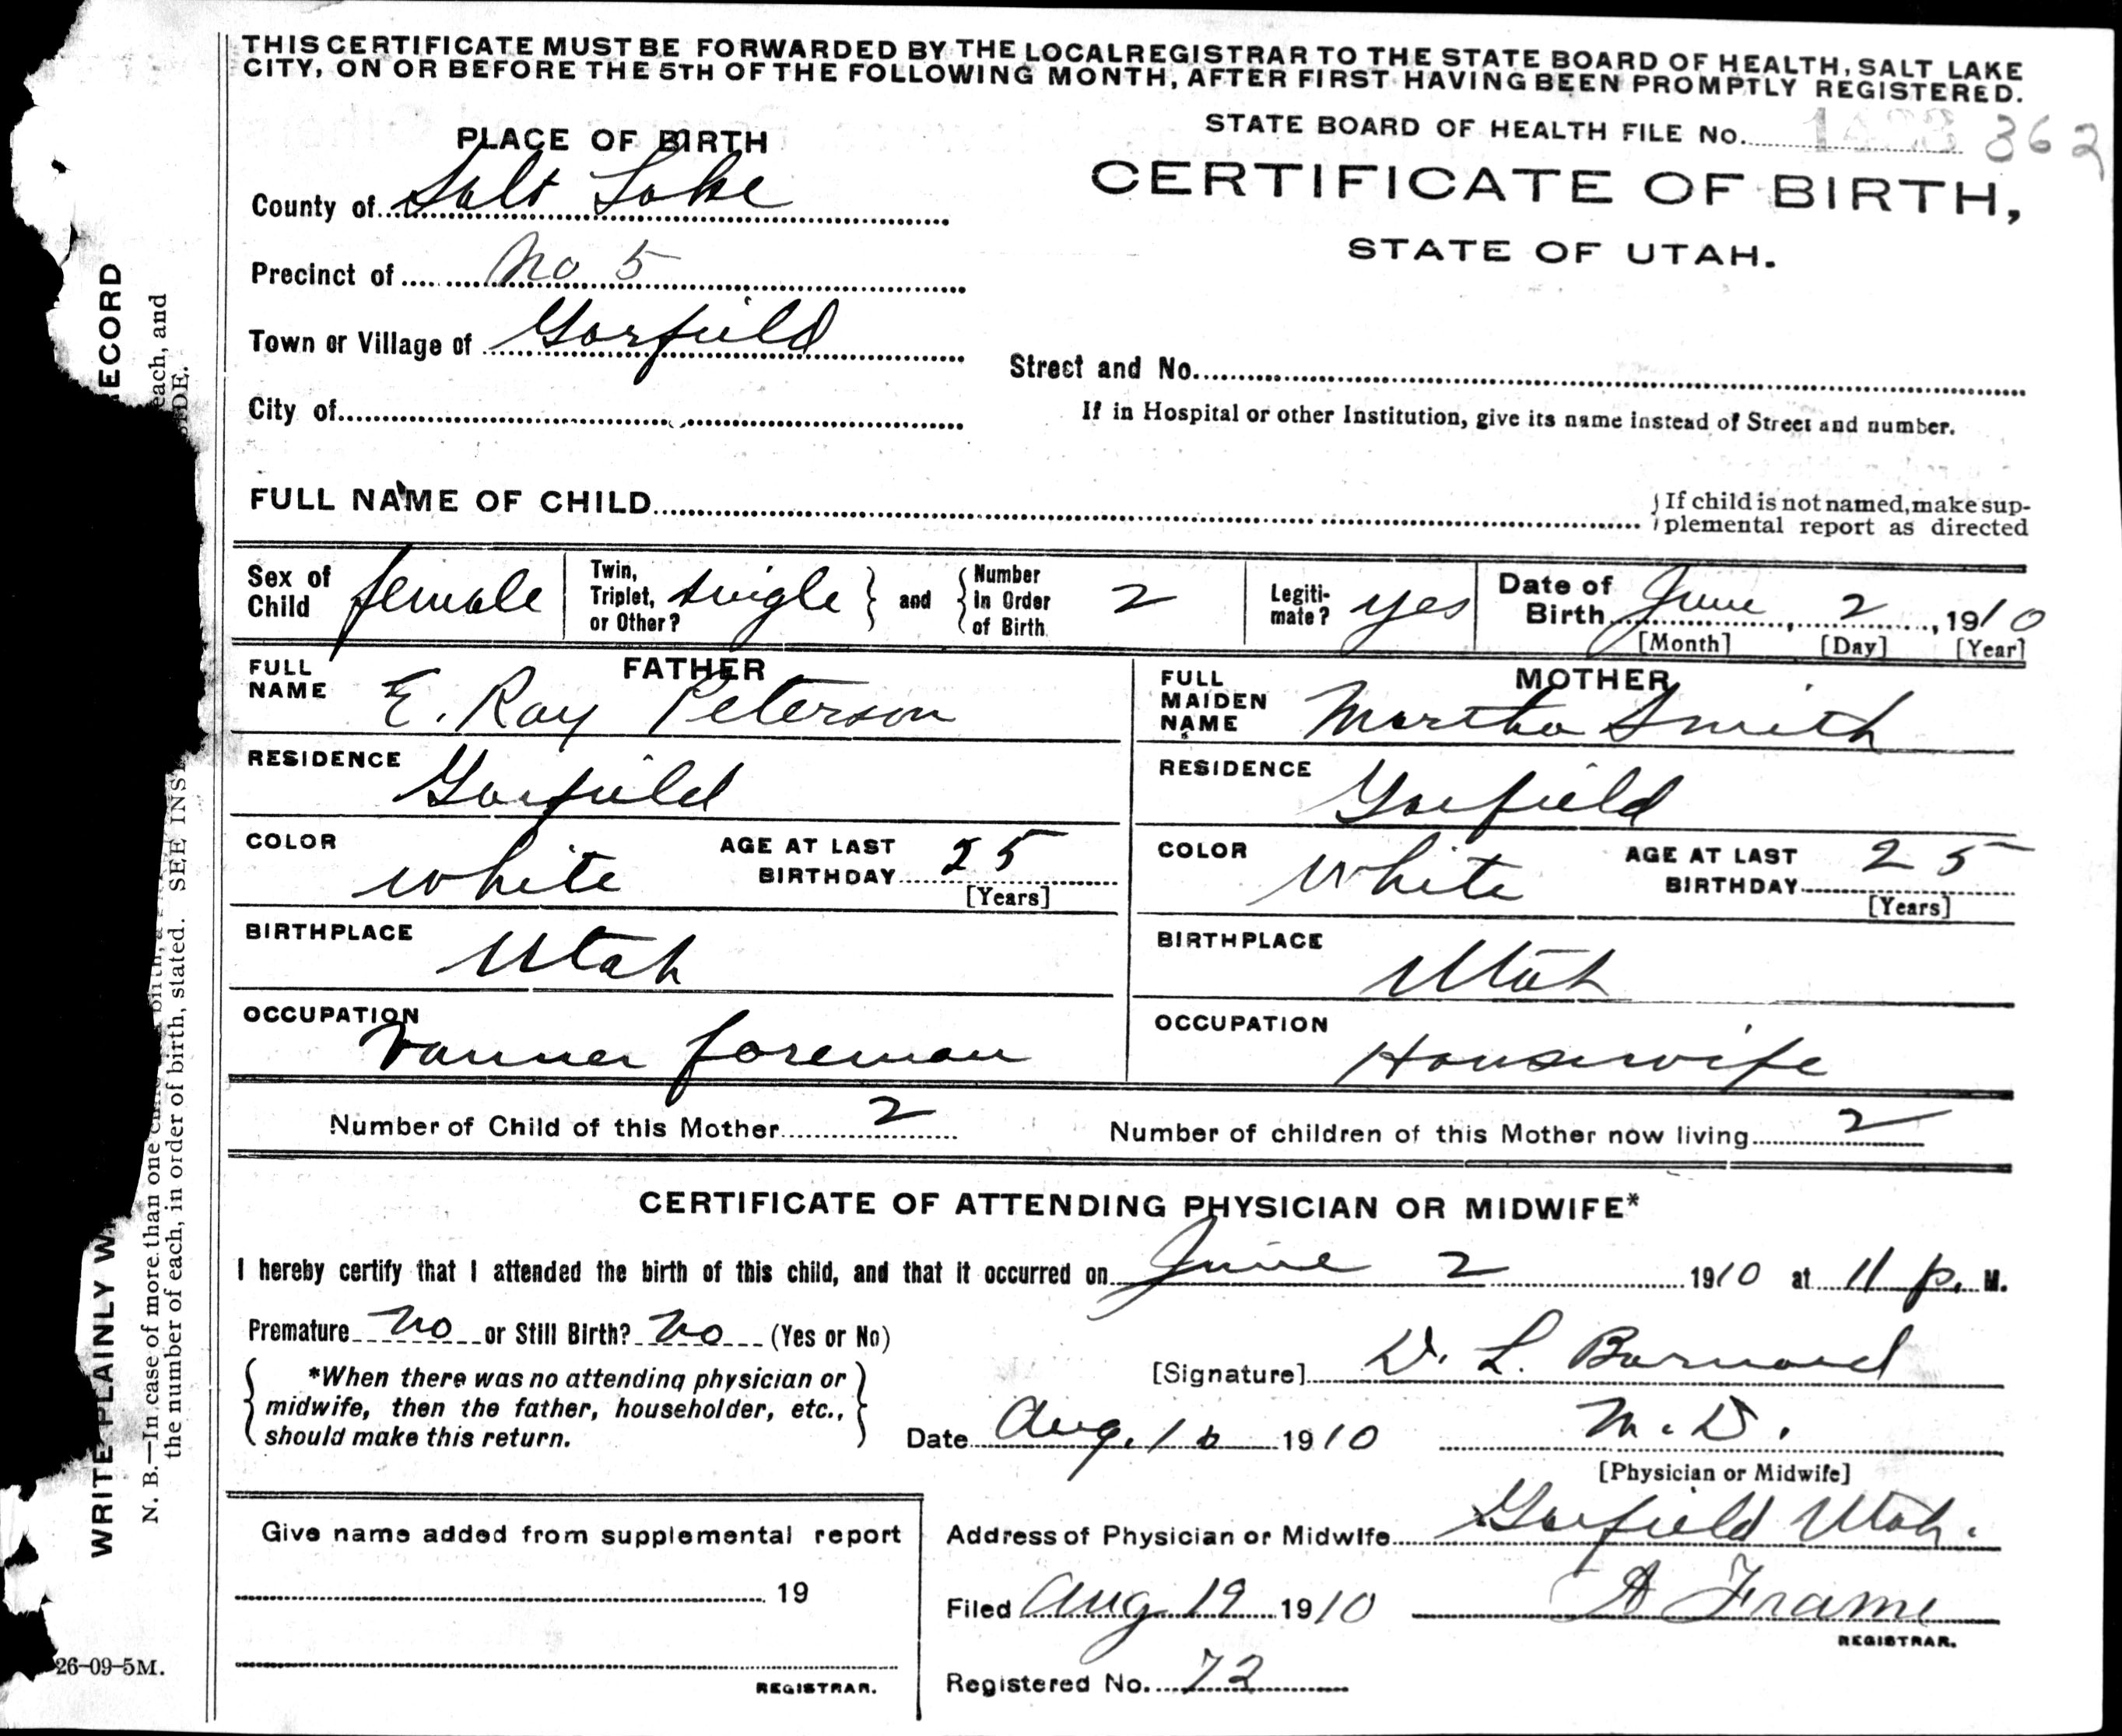 THIS CERTIFICATE MUST BE FORWARDED BY THE LOCAL REGISTRAR TO THE STATE BOARD OF HEALTH, SALT LAKE
CITY, ON OR BEFORE THE 5TH OF THE FOLLOWING MONTH, AFTER FIRST HAVING BEEN PROMPTLY REGISTERED.
STATE BOARD OF HEALTH FILE No. 362
PLACE OF BIRTH
CERTIFICATE OF BIRTH,
STATE OF UTAH.
County of Salt Lake
Precinct of No 5
Town or Village of Garfield
Street and No.
City of
If in Hospital or other Institution, give its name instead of Street and number.
FULL NAME OF CHILD
If child is not named, make sup-
plemental report as directed
Sex of Child female
Twin, Triplet, or Other? single and Number in Order of Birth 2
Legiti-mate? yes
Date of Birth June 2, 1910
[Month] [Day] [Year]
FATHER
FULL NAME E. Ray Peterson
MOTHER
FULL MAIDEN NAME Martha Smith
RESIDENCE Garfield
RESIDENCE Garfield
COLOR white AGE AT LAST BIRTHDAY 25 [Years]
COLOR White AGE AT LAST BIRTHDAY 25 [Years]
BIRTHPLACE Utah
BIRTHPLACE Utah
OCCUPATION Vanner foreman
OCCUPATION Housewife
Number of Child of this Mother 2 Number of children of this Mother now living 2
CERTIFICATE OF ATTENDING PHYSICIAN OR MIDWIFE*
I hereby certify that I attended the birth of this child, and that it occurred on June 2 1910 at 11 p. M.
Premature No or Still Birth? No (Yes or No)
*When there was no attending physician or
midwife, then the father, householder, etc.,
should make this return.
[Signature] D. L. Barnard
Date Aug. 1910 M.D.
[Physician or Midwife]
Give name added from supplemental report
19
REGISTRAR.
Address of Physician or Midwife Garfield Utah.
Filed Aug 19 1910 A Frame
REGISTRAR.
Registered No. 72
ECORD
each, and
IDE.
WRITE PLAINLY W
N. B.—In case of more than one
the number of each, in order of birth, stated. SEE INS
26-09-5M.